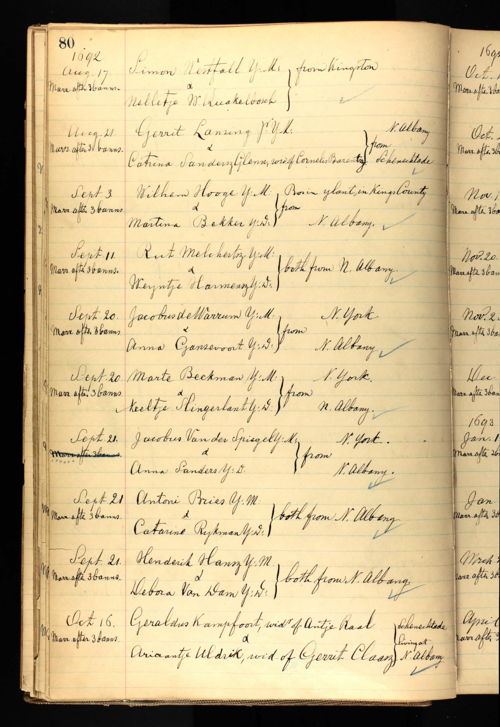 80
1692
Aug. 17. Simon Westfall Y. M. from Kingston
Marr after 3 banns. &
Nelletje W. Quakelbosch
Aug. 21. Gerrit Lansing Jr Y. M. N. Albany
Marr after 3 banns. & from
Catrina Sanders Glenn, wid of Cornelis Barentz Schenechtade
Sept. 3 Wilhem Hooge Y. M. plant, in Kings County
Marr after 3 banns. & from
Martina Bekker Y. D. N. Albany.
Sept. 11. Rut Melchertz Y. M.
Marr after 3 banns. & both from N. Albany
Weyntje Harmensz Y. D.
Sept. 20. Jacobus de Warrum Y. M. N. York
Marr after 3 banns. & from
Anna Gansevoort Y. D. N. Albany
Sept. 20. Marte Beekman Y. M. N. York.
Marr after 3 banns. & from
Neeltje Slingerlant Y. D. N. Albany.
Sept. 21. Jacobus Van der Spiegel Y. M. N. York.
Marr after 3 banns. & from
Anna Sanders Y. D. N. Albany.
Sept. 21 Antoni Bries Y. M.
Marr after 3 banns. & both from N. Albany
Catarina Rykman Y. D.
Sept. 21. Henderik Hansz Y. M.
Marr after 3 banns. & both from N. Albany.
Debora Van Dam Y. D.
Oct 16. Geraldus Kampfoort, widr of Antje Raal Schenechtade
Marr after 3 banns. & living at
Ariaantje Uldrik, wid of Gerrit Claasz N. Albany
169
Oct.
Marr after 3 ba
Oct.
Marr after 3 ba
Nov. 1
Marr after 3 ba
Nov. 20
Marr after 3 ba
Nov. 2
Marr after 3 ba
Dec.
Marr after 3 ba
1693
Jan. 1
Marr after 3 ba
Jan
Marr after 3 ba
Mrch.
Marr after 3 ba
April
Marr after 3 ba